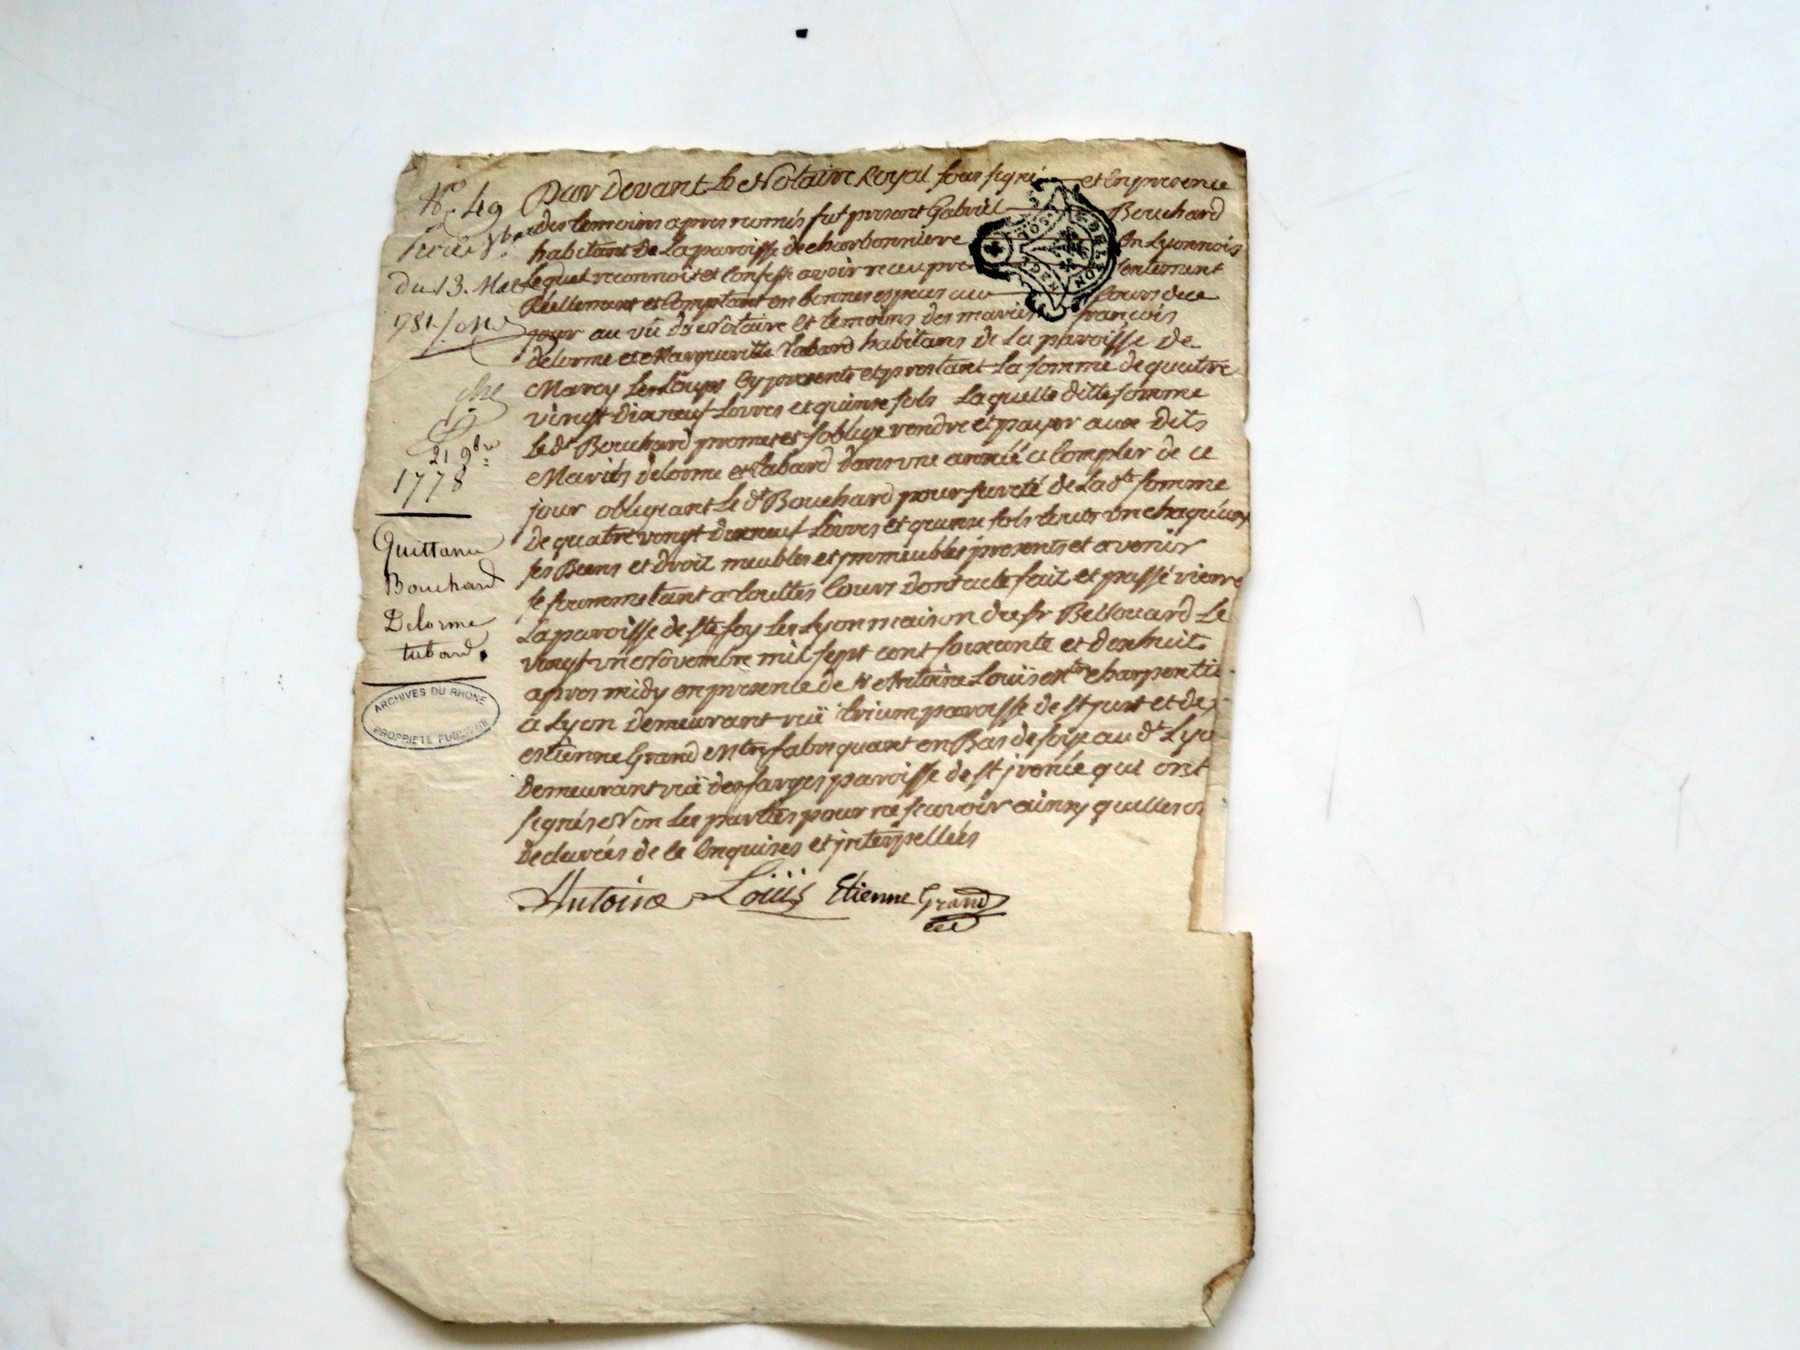 Nro 49
du 13. Mai
1781
21 9bre
1778
Quittance
Bouchard
Delorme
tabard.
ARCHIVES DU RHÔNE
PROPRIÉTÉ PUBLIQUE
Par Devant Le Notaire Royal soussigné et En presence
des temoins apres només fut present Gabriel Bouchard
habitant De La paroisse de charbonniere En Lyonnois
Lequel reconnoit et Confesse avoir receu presentement
Réellement et Comptant en bonnes especes au Cours de ce
jour au vû du Notaire et temoins des mariés françois
delorme et Margueritte Tabard habitans de La paroisse De
Marcy Les Loups Cy presents et prestant La somme de quatre
vingt Dixneuf Livres et quinse sols Laquelle ditte somme
Le dt. Bouchard promet et s'oblige rendre et payer aux Dits
Mariés delorme et tabard dans une année a Compter de ce
jour obligeant Le dt Bouchard pour sureté de Lade somme
De quatre vingt Dixneuf Livres et quinse sols
ses Biens et Droit meubles et jmmeubles presents et avenir
se soummetant a touttes Cours Dont acte fait et passé
La paroisse de ste foy Les Lyon maison du sr Bellouard Le
vingt un Novembre mil sept cent soixante et dixhuit
apres midy en presence de sr Antoine Louïs mtre charpentie
a Lyon demeurant ruë trium paroisse de st just et de sr
estienne Grand Mtre fabriquant en Bas de soye au dt Lyo
Demeurant ruë des farges paroisse de st jrenée qui ont
signés Non Les parties pour ne scavoir ainsy quelles o
Declarées de ce Enquises et jnterpellées
Antoine Loüis Etienne Grand